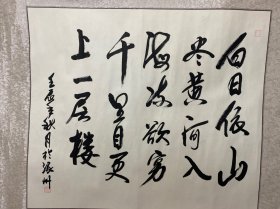 白日依山
尽黄河入
海流欲穷
千里目更
上一层楼
壬辰年秋月於州